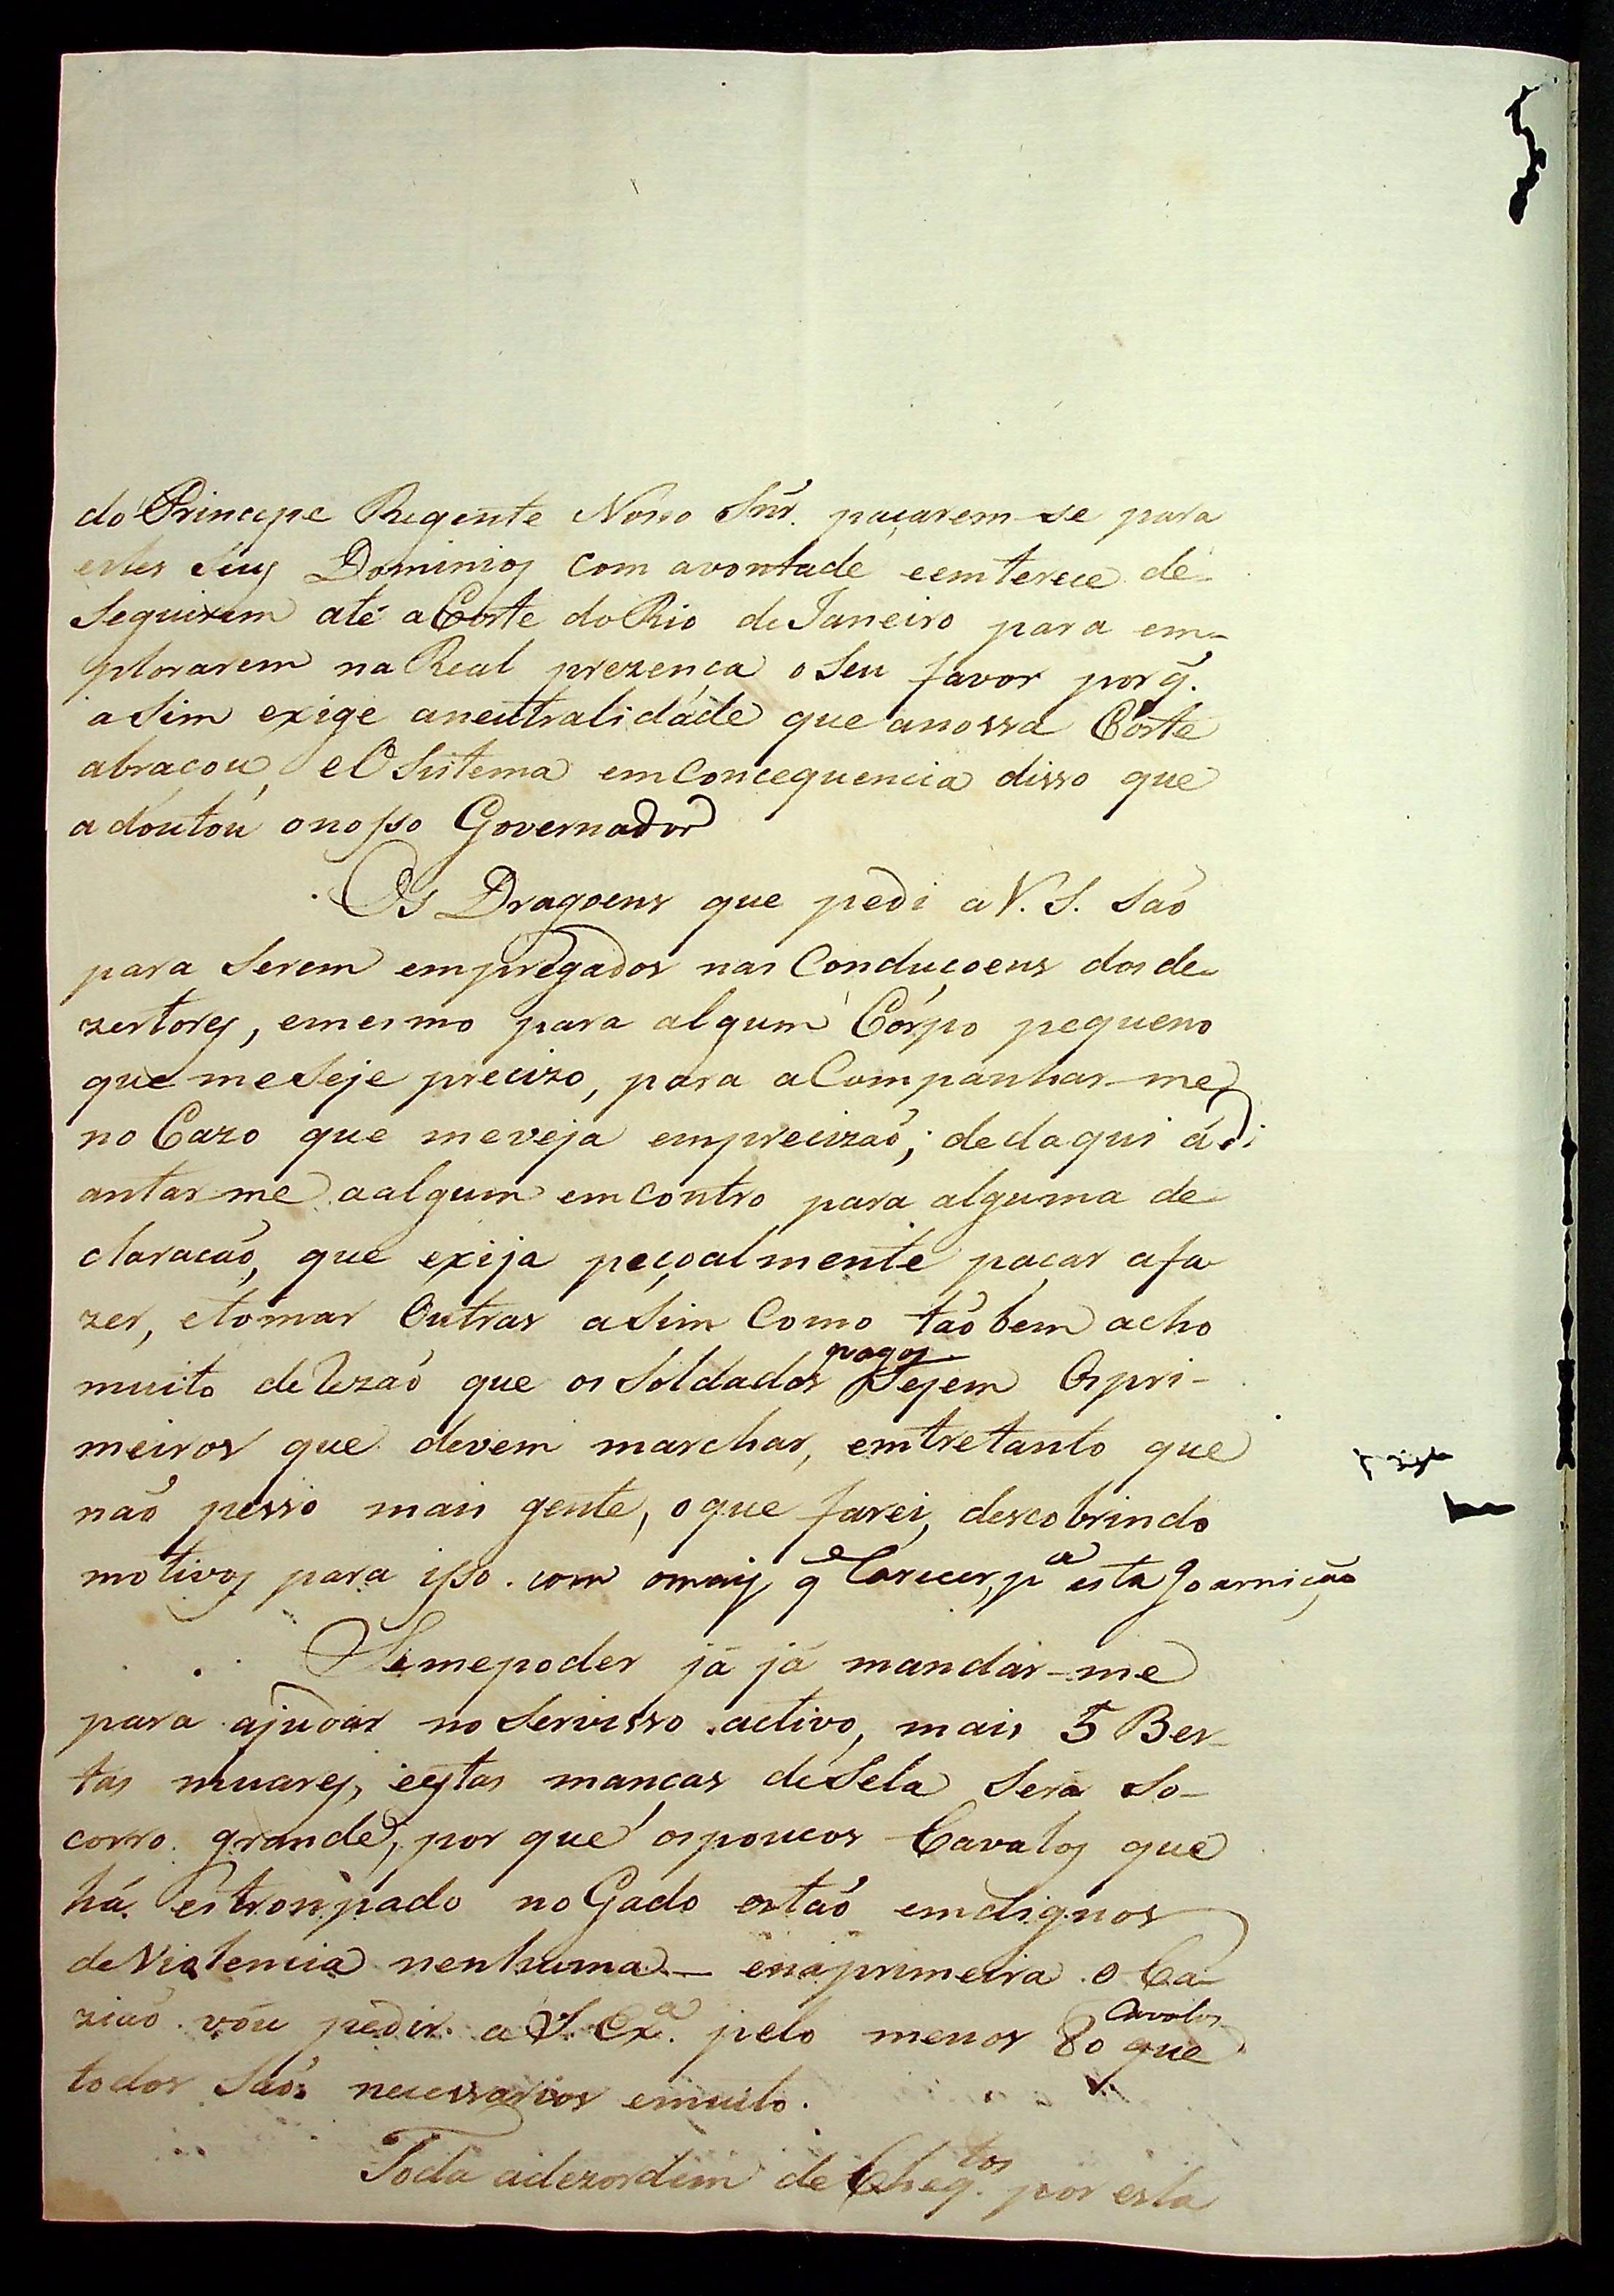 do Principe Regente Nosso Snr. paçarem-se para
estes Seus Dominios com avontade eemterece de
Seguirem até aCorte do Rio de Janeiro para em-
plorarem na Real prezença o Seu favor porq.
aSim exige aneutralidade que anossa Corte
abraçou, e O Sistema emConcequencia disso que
adoutou onosso Governador
Os Dragoens que pedi a V. S. São
para Serem empregados nas Conduçoens dos de-
zertores, emesmo para algum Corpo pequeno
que meSeje precizo, para aCompanhar-me
no Cazo que meveja emprecizaõ; dedaqui ádi
antarme aalgum emcontro para alguma de
claracaõ, que exija peçoalmente paçar afa
zer, etomar Outras aSim Como taõbem acho
muito deRezaõ que os Soldados pagos Sejem Ospri-
meiros que devem marchar, emtretanto que
naõ pesso mais gente, oque farei, descobrindo
motivos para isso. com omais q̃ Carecer, pa esta Goarniçaõ
Semepoder já já mandar-me
para ajudar no Servisso activo, mais 5 Bes-
tas muares, eestas mançar deSela Será So-
corro grande, por que ospoucos Cavalos que
há estronpado no Gado estaõ emdignos
deViolencia nenhuma - enaprimeira oCa-
ziaõ vou pedir a S. Exa. pelo menos 80 Cavalos que
todos Saõ necessarios emuito.
Toda adezordem de Cheq.tos por esta